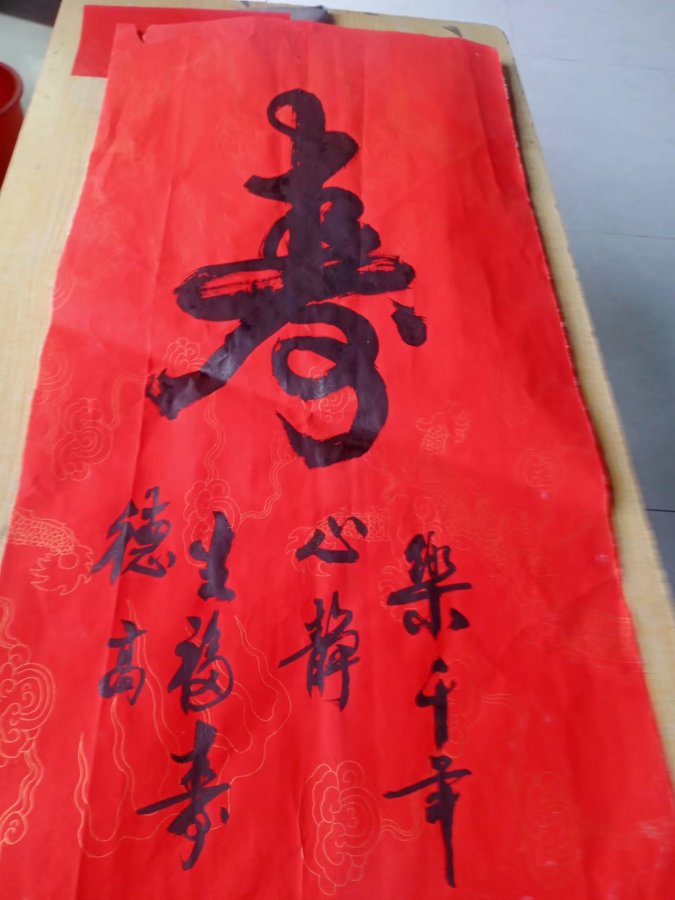 寿
德高
生福寿
心静
樂千年